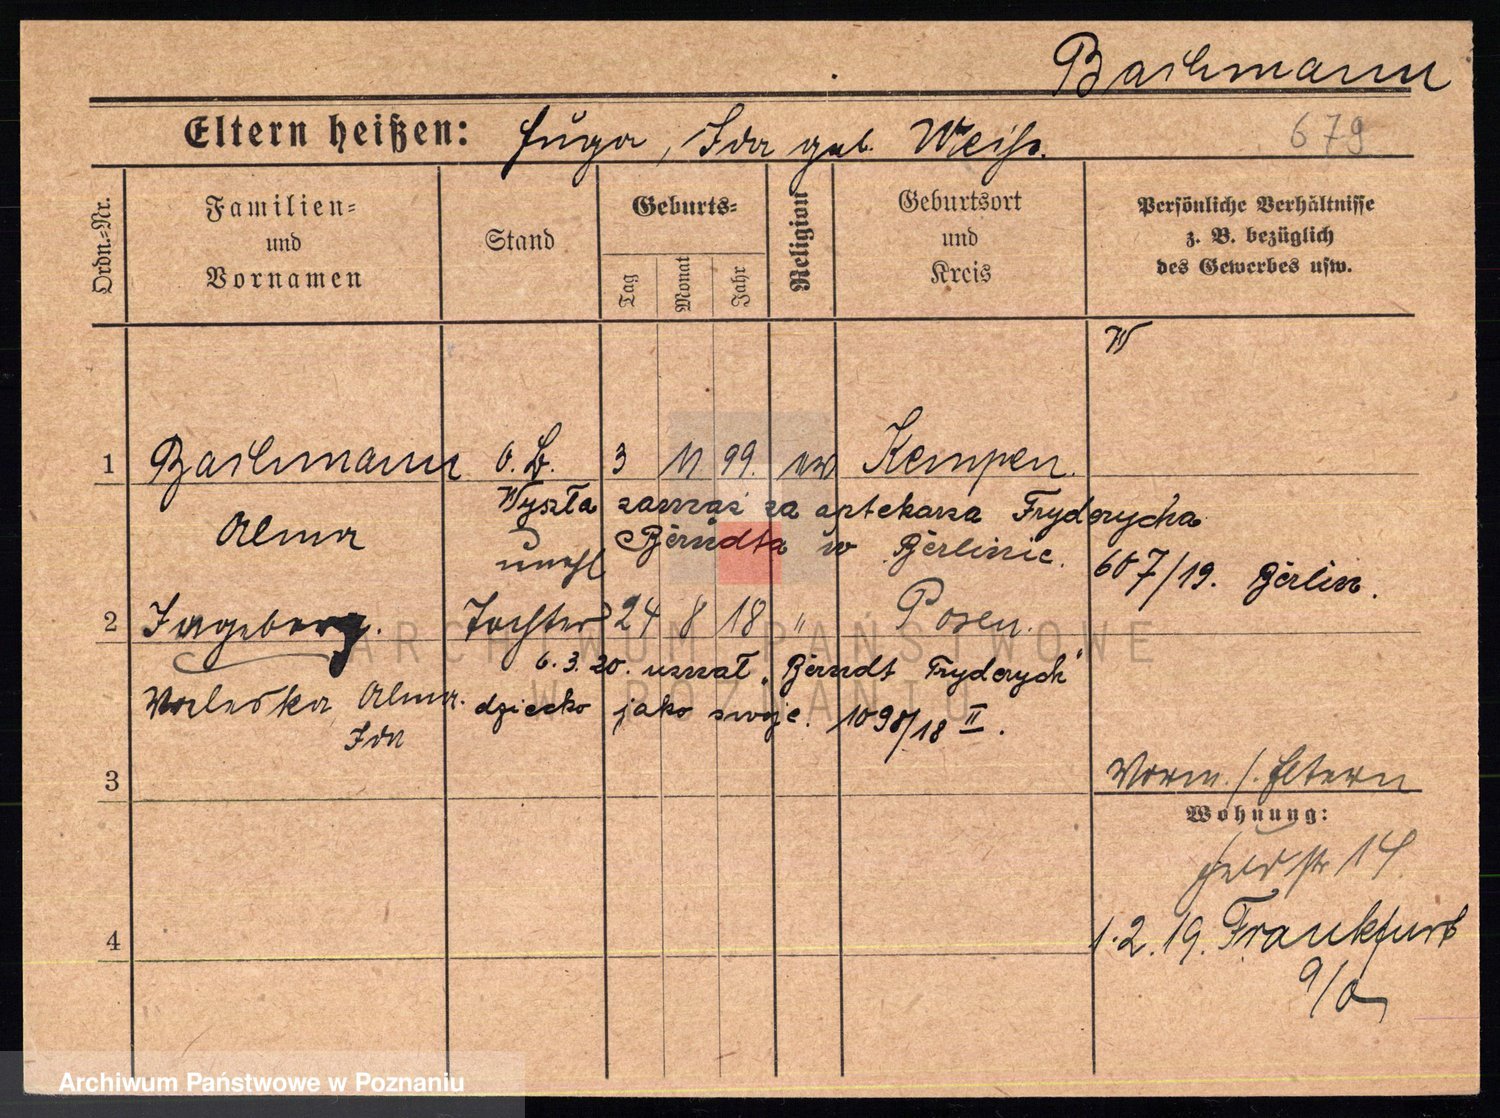 Bachmann
Eltern heißen: Hugo, Ida geb. Weiß.
679
Ordn.=Nr.
Familien=
und
Vornamen
Stand
Geburts=
Tag
Monat
Jahr
Religion
Geburtsort
und
Kreis
Persönliche Verhältnisse
z. B. bezüglich
des Gewerbes usw.
W
1 Bachmann o. B. 3 11 99. ev Kempen.
Wyszła zamąż za aptekarza Fryderycha
Alma
Berndta w Berlinie.
unehl
607/19. Berlin.
2 Ingeborg. Tochter 24 8 18 " Posen.
6.3.20. uznał "Berndt Fryderych"
Valeska Alma
dziecko jako swoje. 1098/18 II.
Ida
3
Vorm. /. Eltern
Wohnung:
Feldstr 14.
4
1.2.19. Frankfurt
a/O
ARCHIWUM PAŃSTWOWE
W POZNANIU
Archiwum Państwowe w Poznaniu